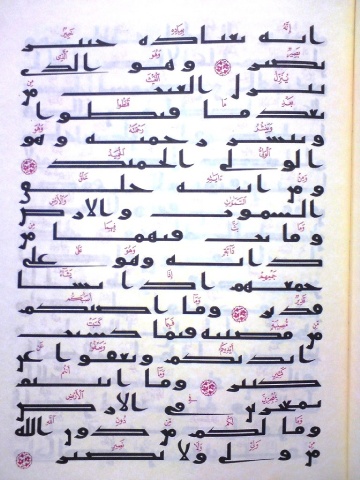 انه بعباده خبير
بصير وهو الذي
ينزل الغيث من
بعد ما قنطوا
وينشر رحمته وهو
الولي الحميد
ومن ايته خلق
السموت والارض
وما بث فيهما من
دابة وهو على
جمعهم اذا يشا
قدير وما اصبكم
من مصيبة فبما كسبت
ايديكم ويعفوا عن
كثير وما انتم
بمعجزين في الارض
وما لكم من دون الله
من ولي ولا نصير